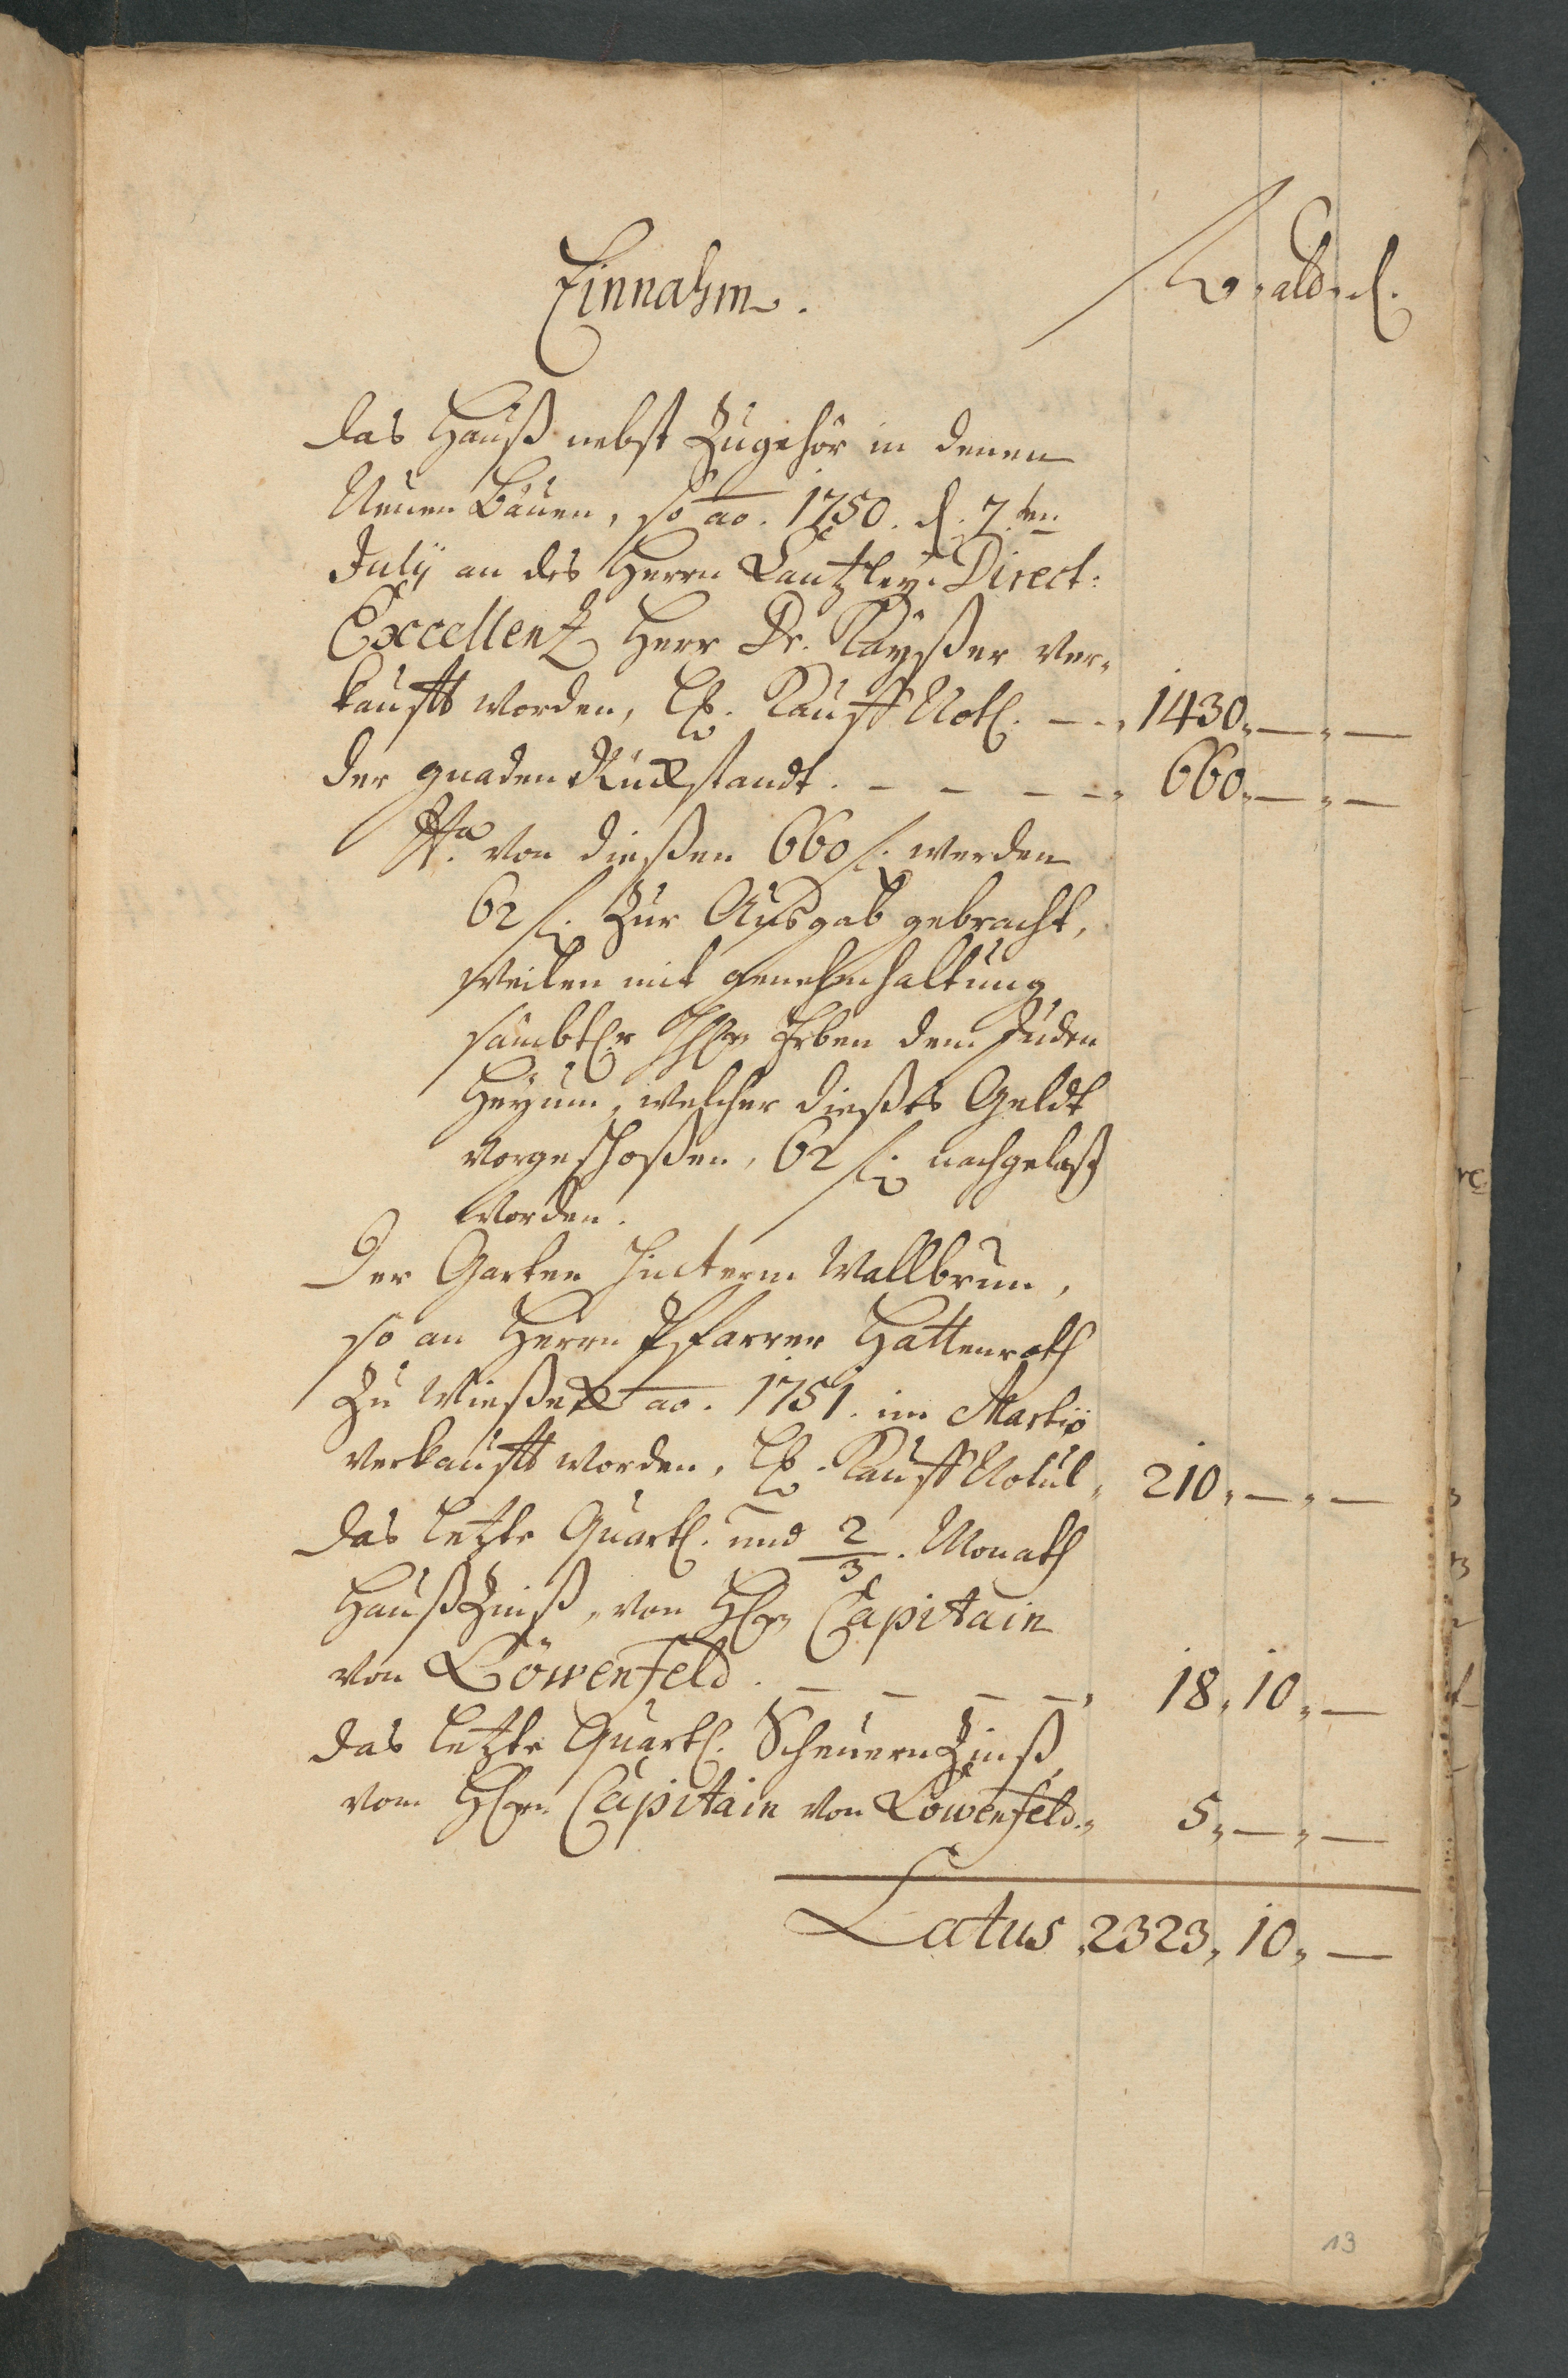 Einnahm. fl. alb. d.
das Hauß nebst Zugehör in denen
Neuen Bäuen, so ao. 1750. d. 7.ten
July an des Herrn Cantzley Direct:
Excellentz Herr Dr. Kayßer ver„
kaufft worden, lt. Kauff Notl. — „ 1430„ — „ —
der gnaden Rückstandt. — — — — „ 660„ — „ —
Na. von dießen 660 fl. werden
62 fl. zur Außgab gebracht,
weilen mit genehmhaltung
sämbtl.r HH.n Erben dem Juden
Heyum, welcher dießes Geldt
vorgeschoßen, 62 fl. nachgelaß
worden.
Der Garten hinterm Wallbrun,
so an Herrn Pfarrer Hattenroth
zu Wießeck ao. 1751. im Martio
verkaufft worden, lt. Kauff Notul „ 210„ — „ —
das letzte Quartl. und 2/3. Monath
Haußzinß, von H.n Capitain
von Löwenfeld. — — — — „ 18„ 10„ —
das letzte Quartl. Scheuern Zinß
vom H.n Capitain von Löwenfeld. „ 5„ — „ —
Latus „ 2323„ 10„ —
13